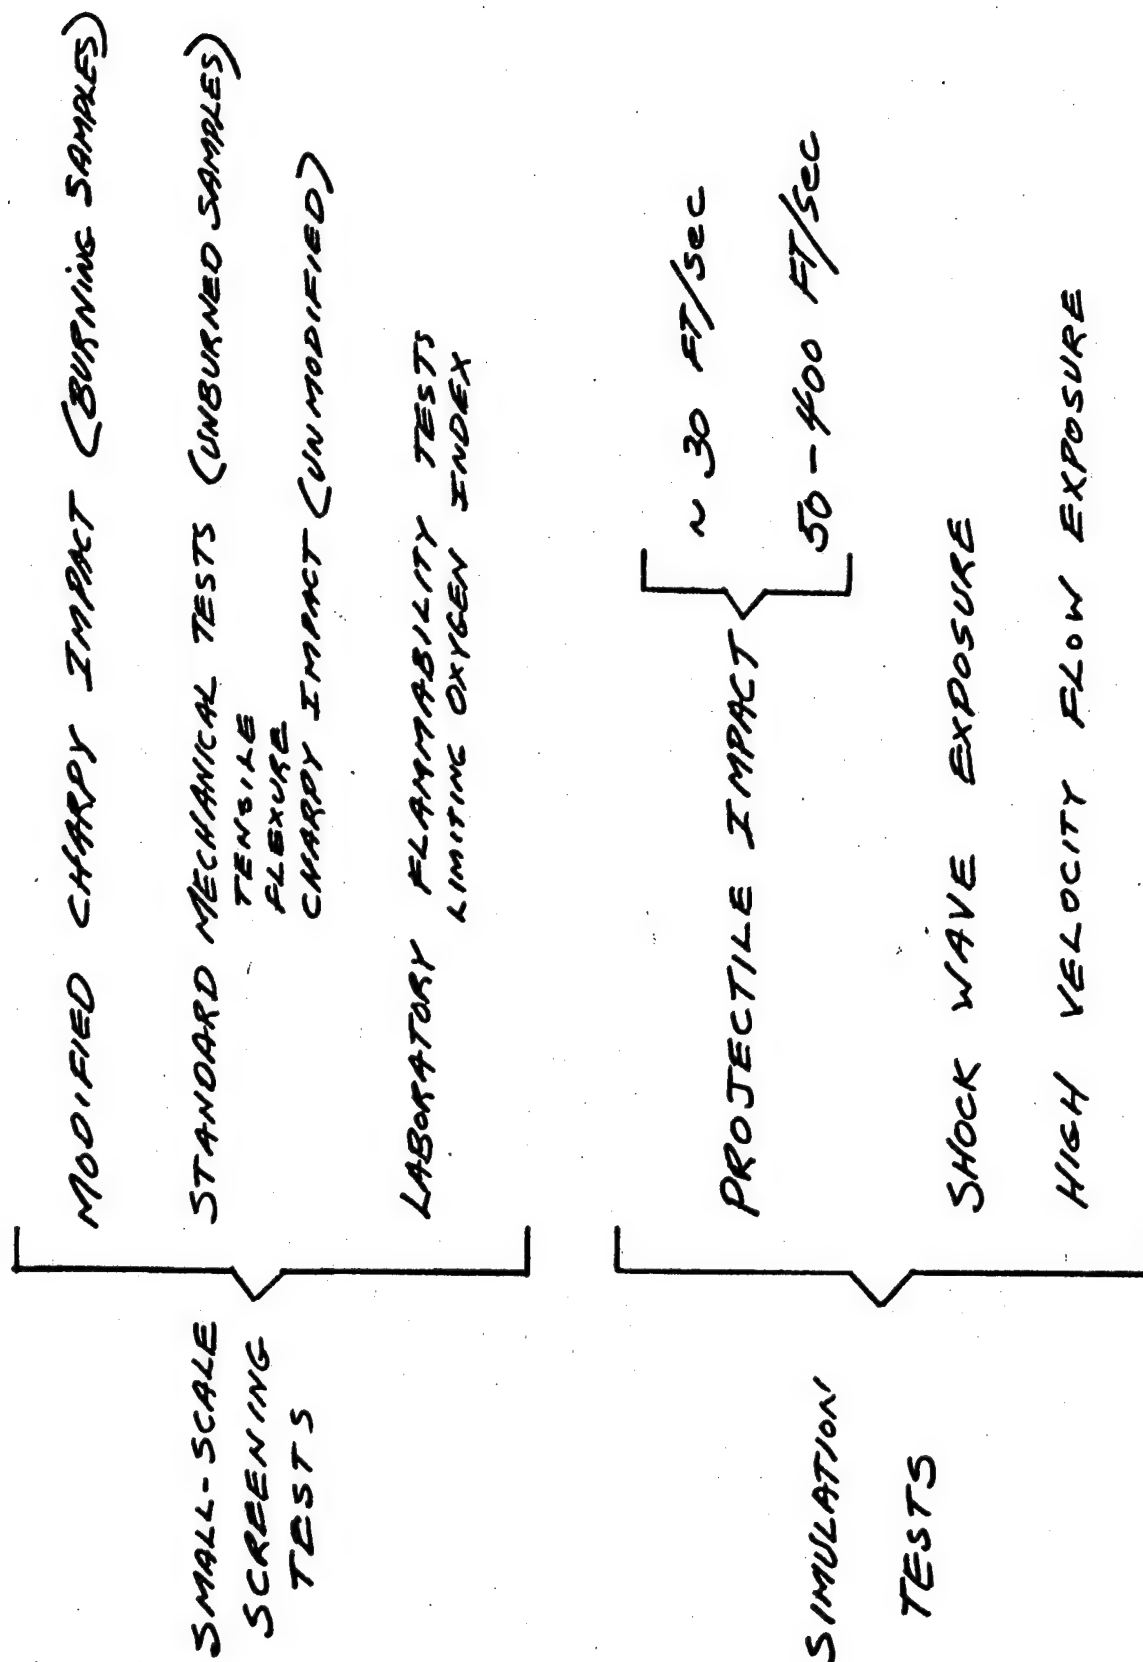 SMALL-SCALE
SCREENING
TESTS
MODIFIED CHARPY IMPACT (BURNING SAMPLES)
STANDARD MECHANICAL TESTS (UNBURNED SAMPLES)
TENSILE
FLEXURE
CHARPY IMPACT (UNMODIFIED)
LABORATORY FLAMMABILITY TESTS
LIMITING OXYGEN INDEX
SIMULATION
TESTS
PROJECTILE IMPACT
~ 30 FT/SEC
50-400 FT/SEC
SHOCK WAVE EXPOSURE
HIGH VELOCITY FLOW EXPOSURE